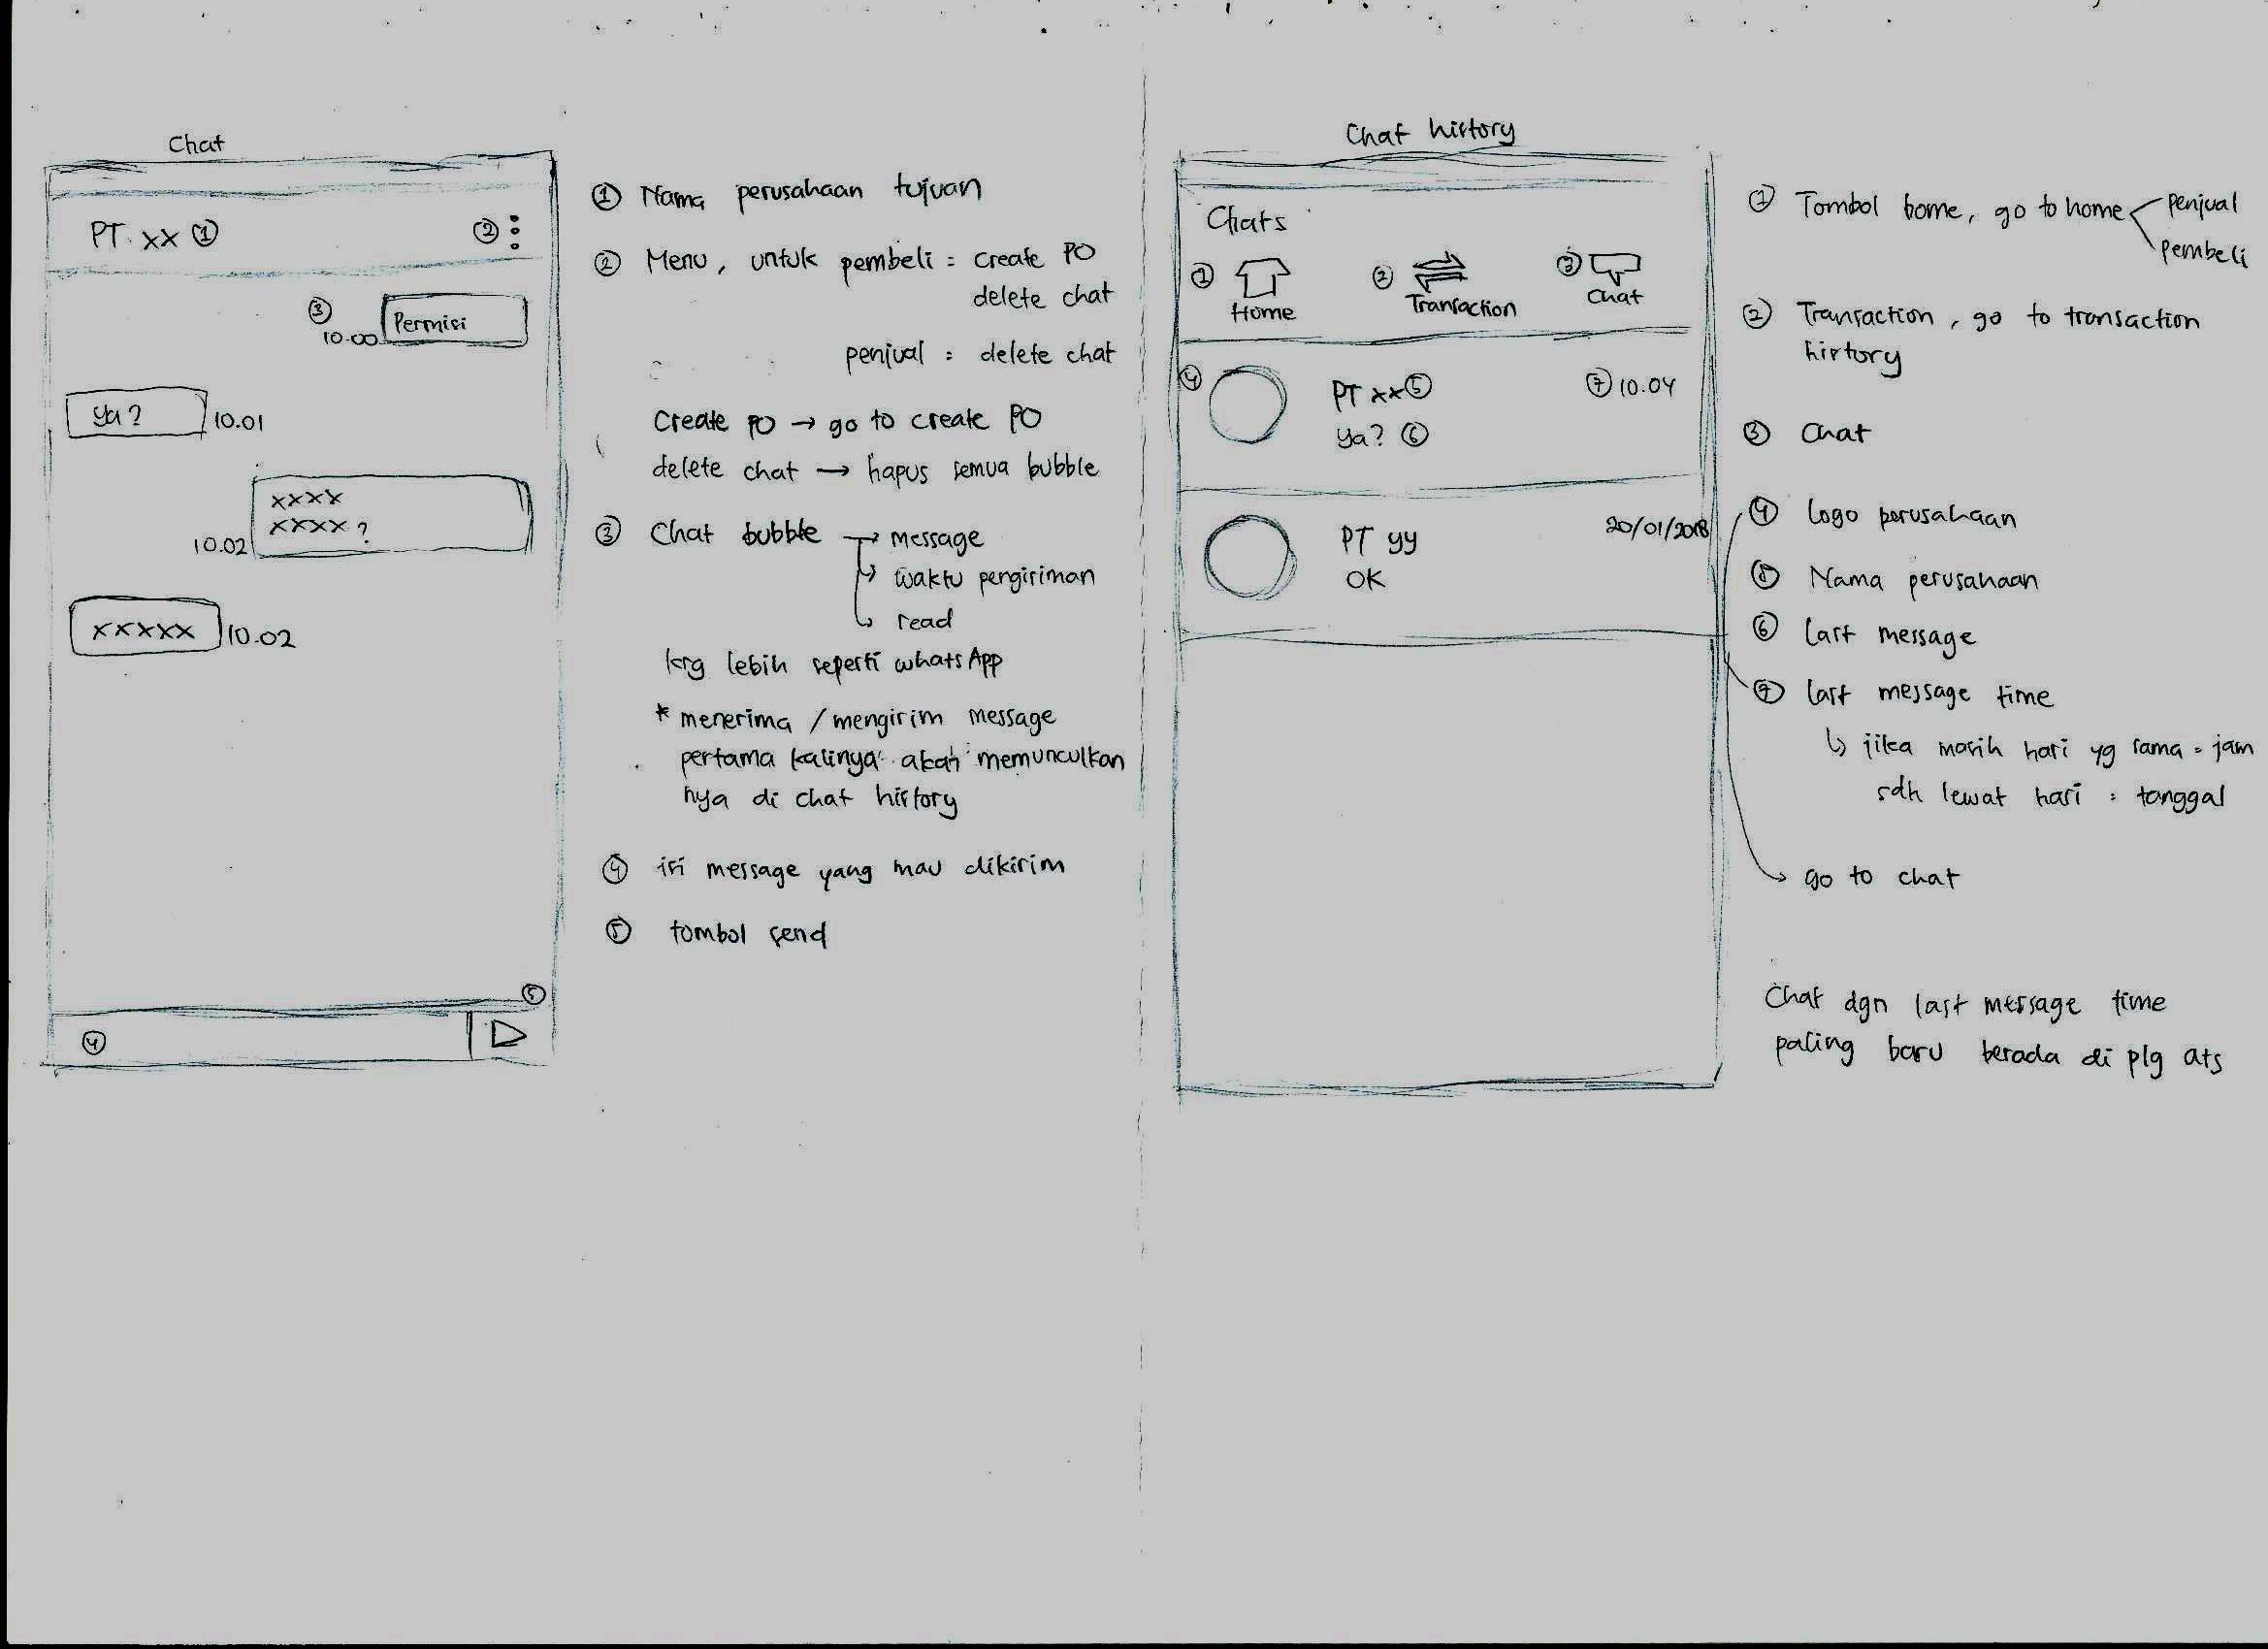 Chat
PT. xx ①
② ⋮
③
10.00 Permisi
Ya? 10.01
xxxx
xxxx ?
10.02
xxxxx 10.02
⑤
④
① Nama perusahaan tujuan
② Menu, untuk pembeli = create PO
delete chat
penjual = delete chat
Create PO → go to create PO
delete chat → hapus semua bubble
③ Chat bubble → message
↳ waktu pengiriman
↳ read
krg lebih seperti whatsApp
* menerima / mengirim message
pertama kalinya akan memunculkan
nya di chat history
④ isi message yang mau dikirim
⑤ tombol send
Chat history
Chats
① Home
② Transaction
③ Chat
④ PT xx ⑤ ⑦ 10.04
Ya? ⑥
PT yy 20/01/2018
OK
① Tombol home, go to home penjual
pembeli
② Transaction, go to transaction
history
③ Chat
④ Logo perusahaan
⑤ Nama perusahaan
⑥ last message
⑦ last message time
↳ jika masih hari yg sama = jam
sdh lewat hari = tanggal
→ go to chat
Chat dgn last message time
paling baru berada di plg ats